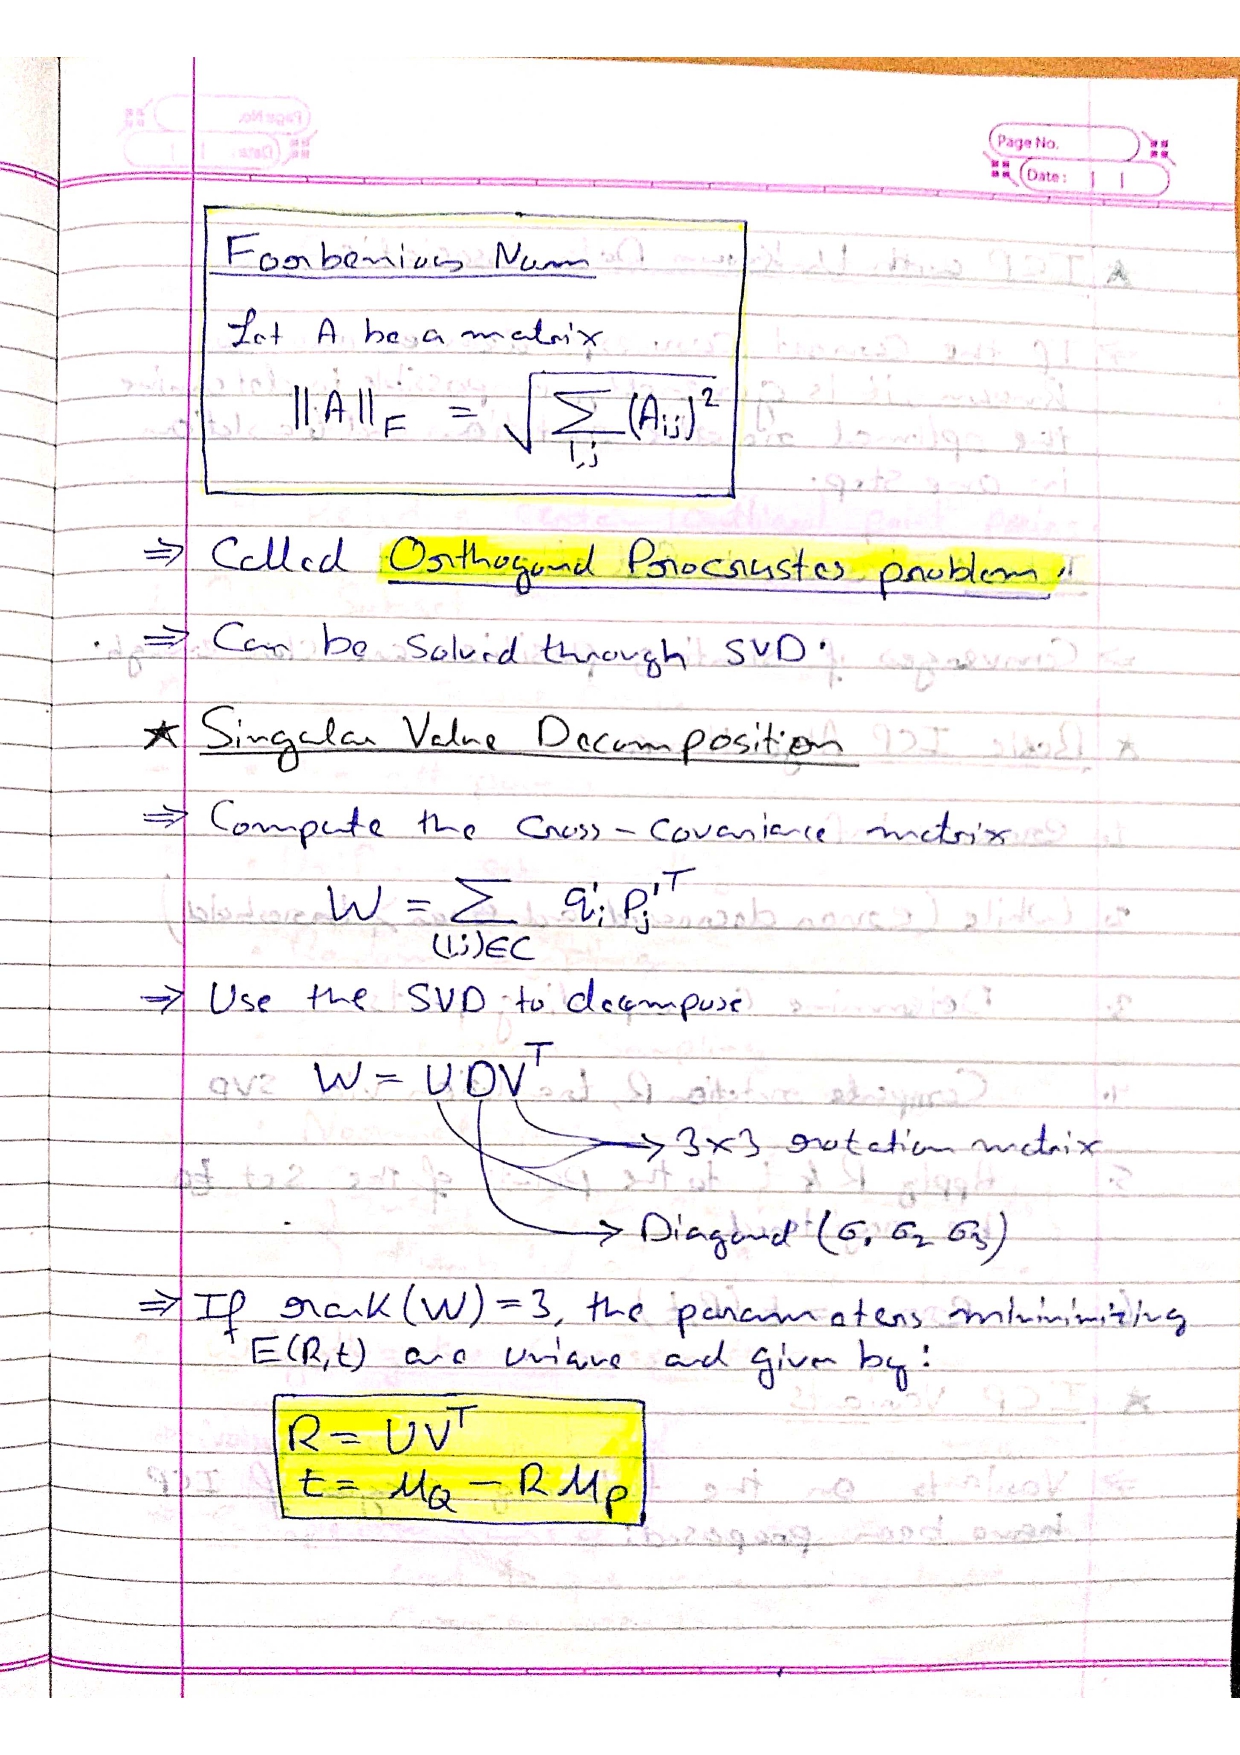 Page No.
Date:
Foorbenious Norm
Let A be a matrix
||A||F = √Σi,j (Aij)²
⇒ Called Orthogonal Procrustes problem.
⇒ Can be solved through SVD.
★ Singular Value Decomposition
⇒ Compute the cross-covariance matrix
W = Σ(i,j)∈C q'i p'jᵀ
⇒ Use the SVD to decompose
W = UDVᵀ
→ 3×3 rotation matrix
→ Diagonal (σ1 σ2 σ3)
⇒ If rank(W)=3, the parameters minimizing
E(R,t) are unique and given by:
R = UVᵀ
t = μQ − RμP